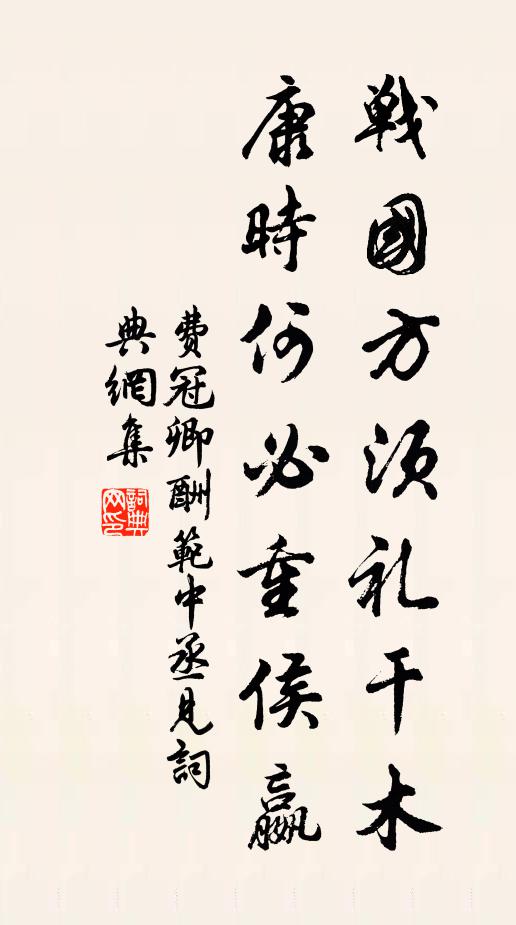 戰國方須礼干木
康時何必重侯嬴
費冠卿酬範中丞見詞
典網集
詞典网印